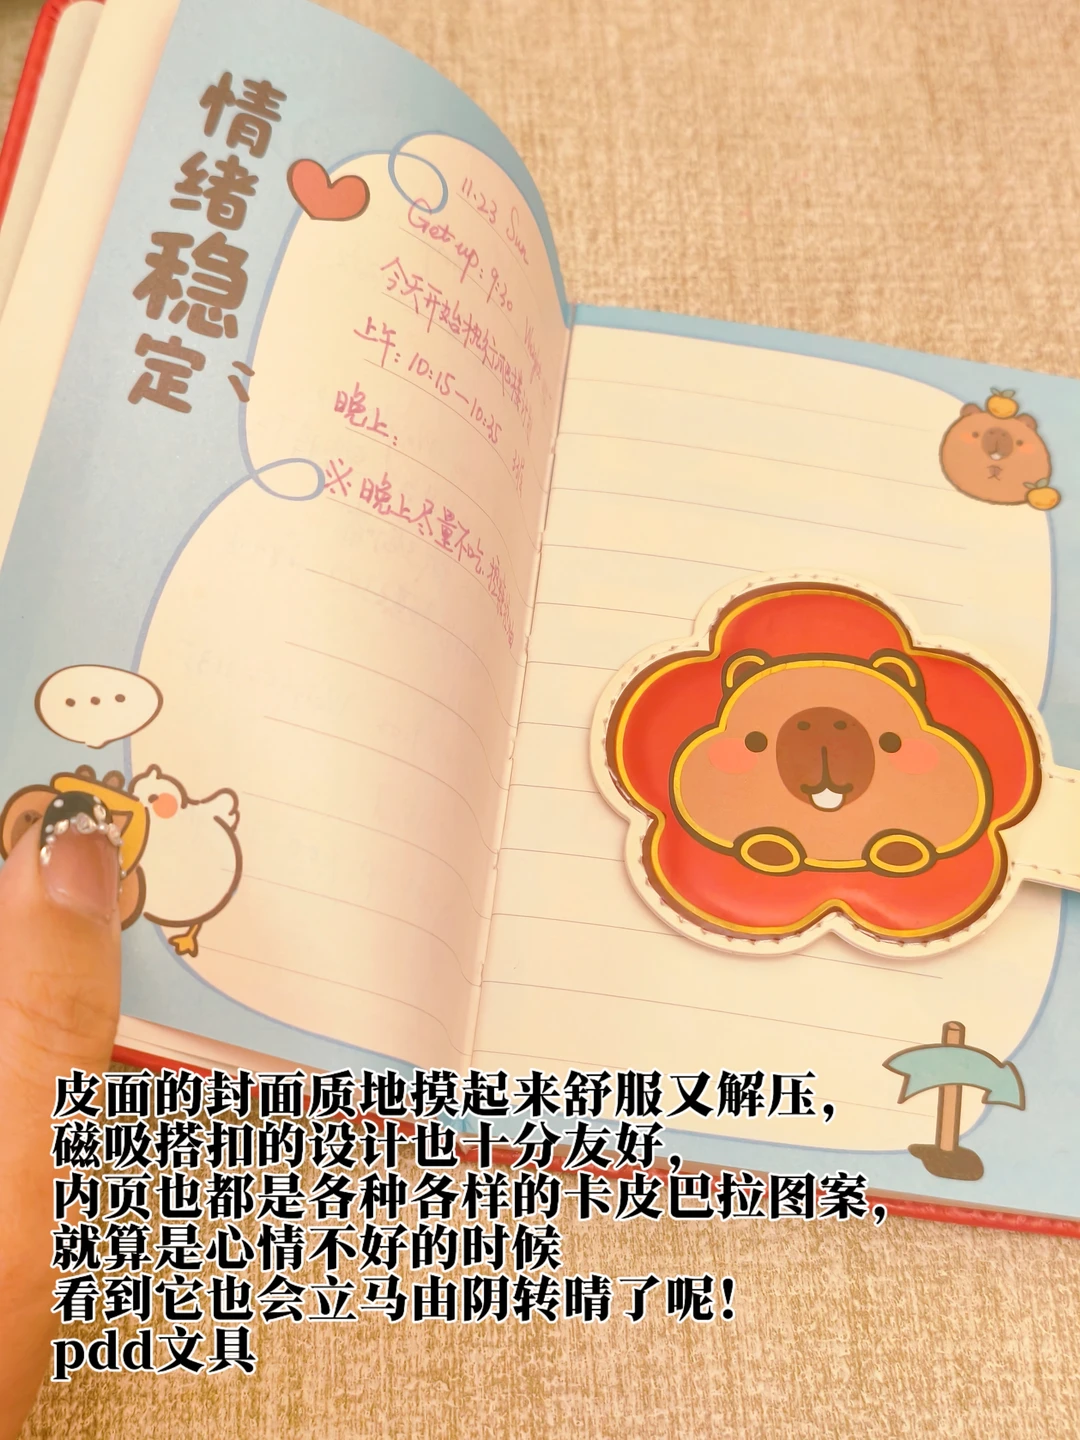 情绪稳定
11.23 Sun
Get up: 9:30
今天开始执行爬楼计划
上午: 10:15—10:35
晚上:
※ 晚上尽量不吃
皮面的封面质地摸起来舒服又解压,
磁吸搭扣的设计也十分友好,
内页也都是各种各样的卡皮巴拉图案,
就算是心情不好的时候
看到它也会立马由阴转晴了呢!
pdd文具